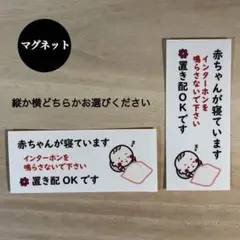 マグネット
縦か横どちらかお選びください
赤ちゃんが寝ています
インターホンを
鳴らさないで下さい
置き配OKです
赤ちゃんが寝ています
インターホンを
鳴らさないで下さい
置き配OKです